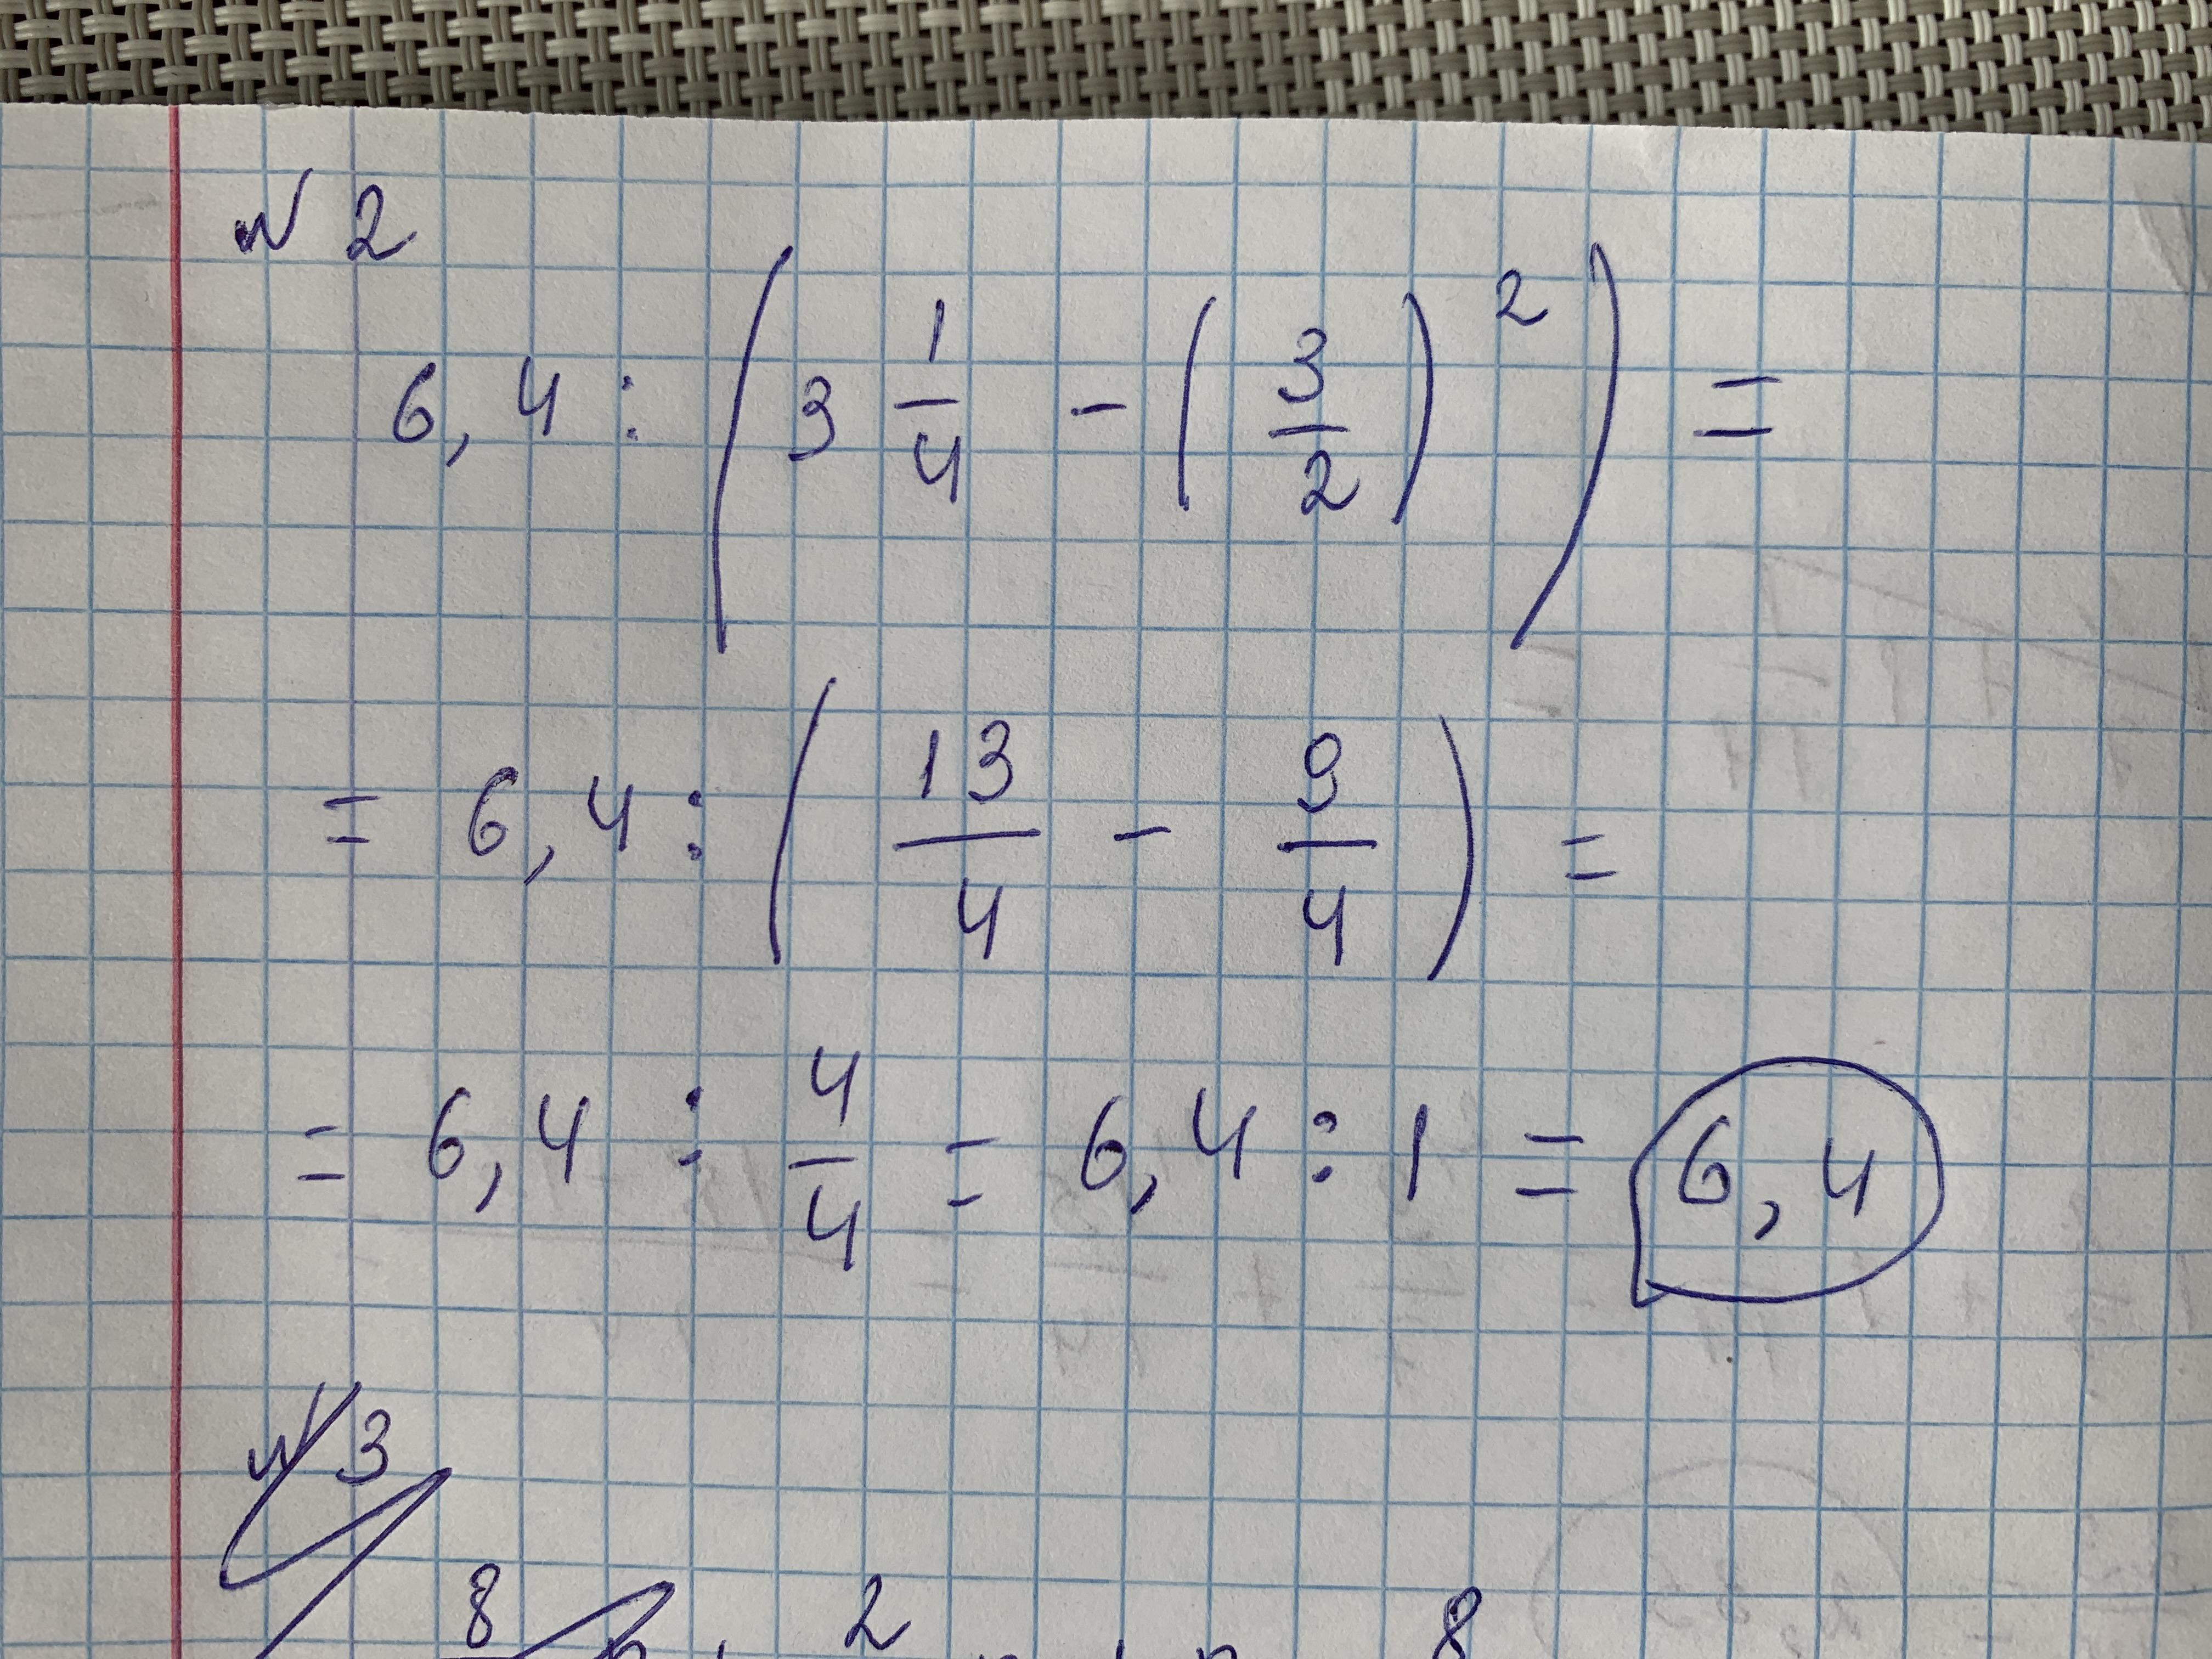 № 2
6,4 : (3 1/4 - (3/2)²) =
= 6,4 : (13/4 - 9/4) =
= 6,4 : 4/4 = 6,4 : 1 = 6,4
№ 3
8 2 8